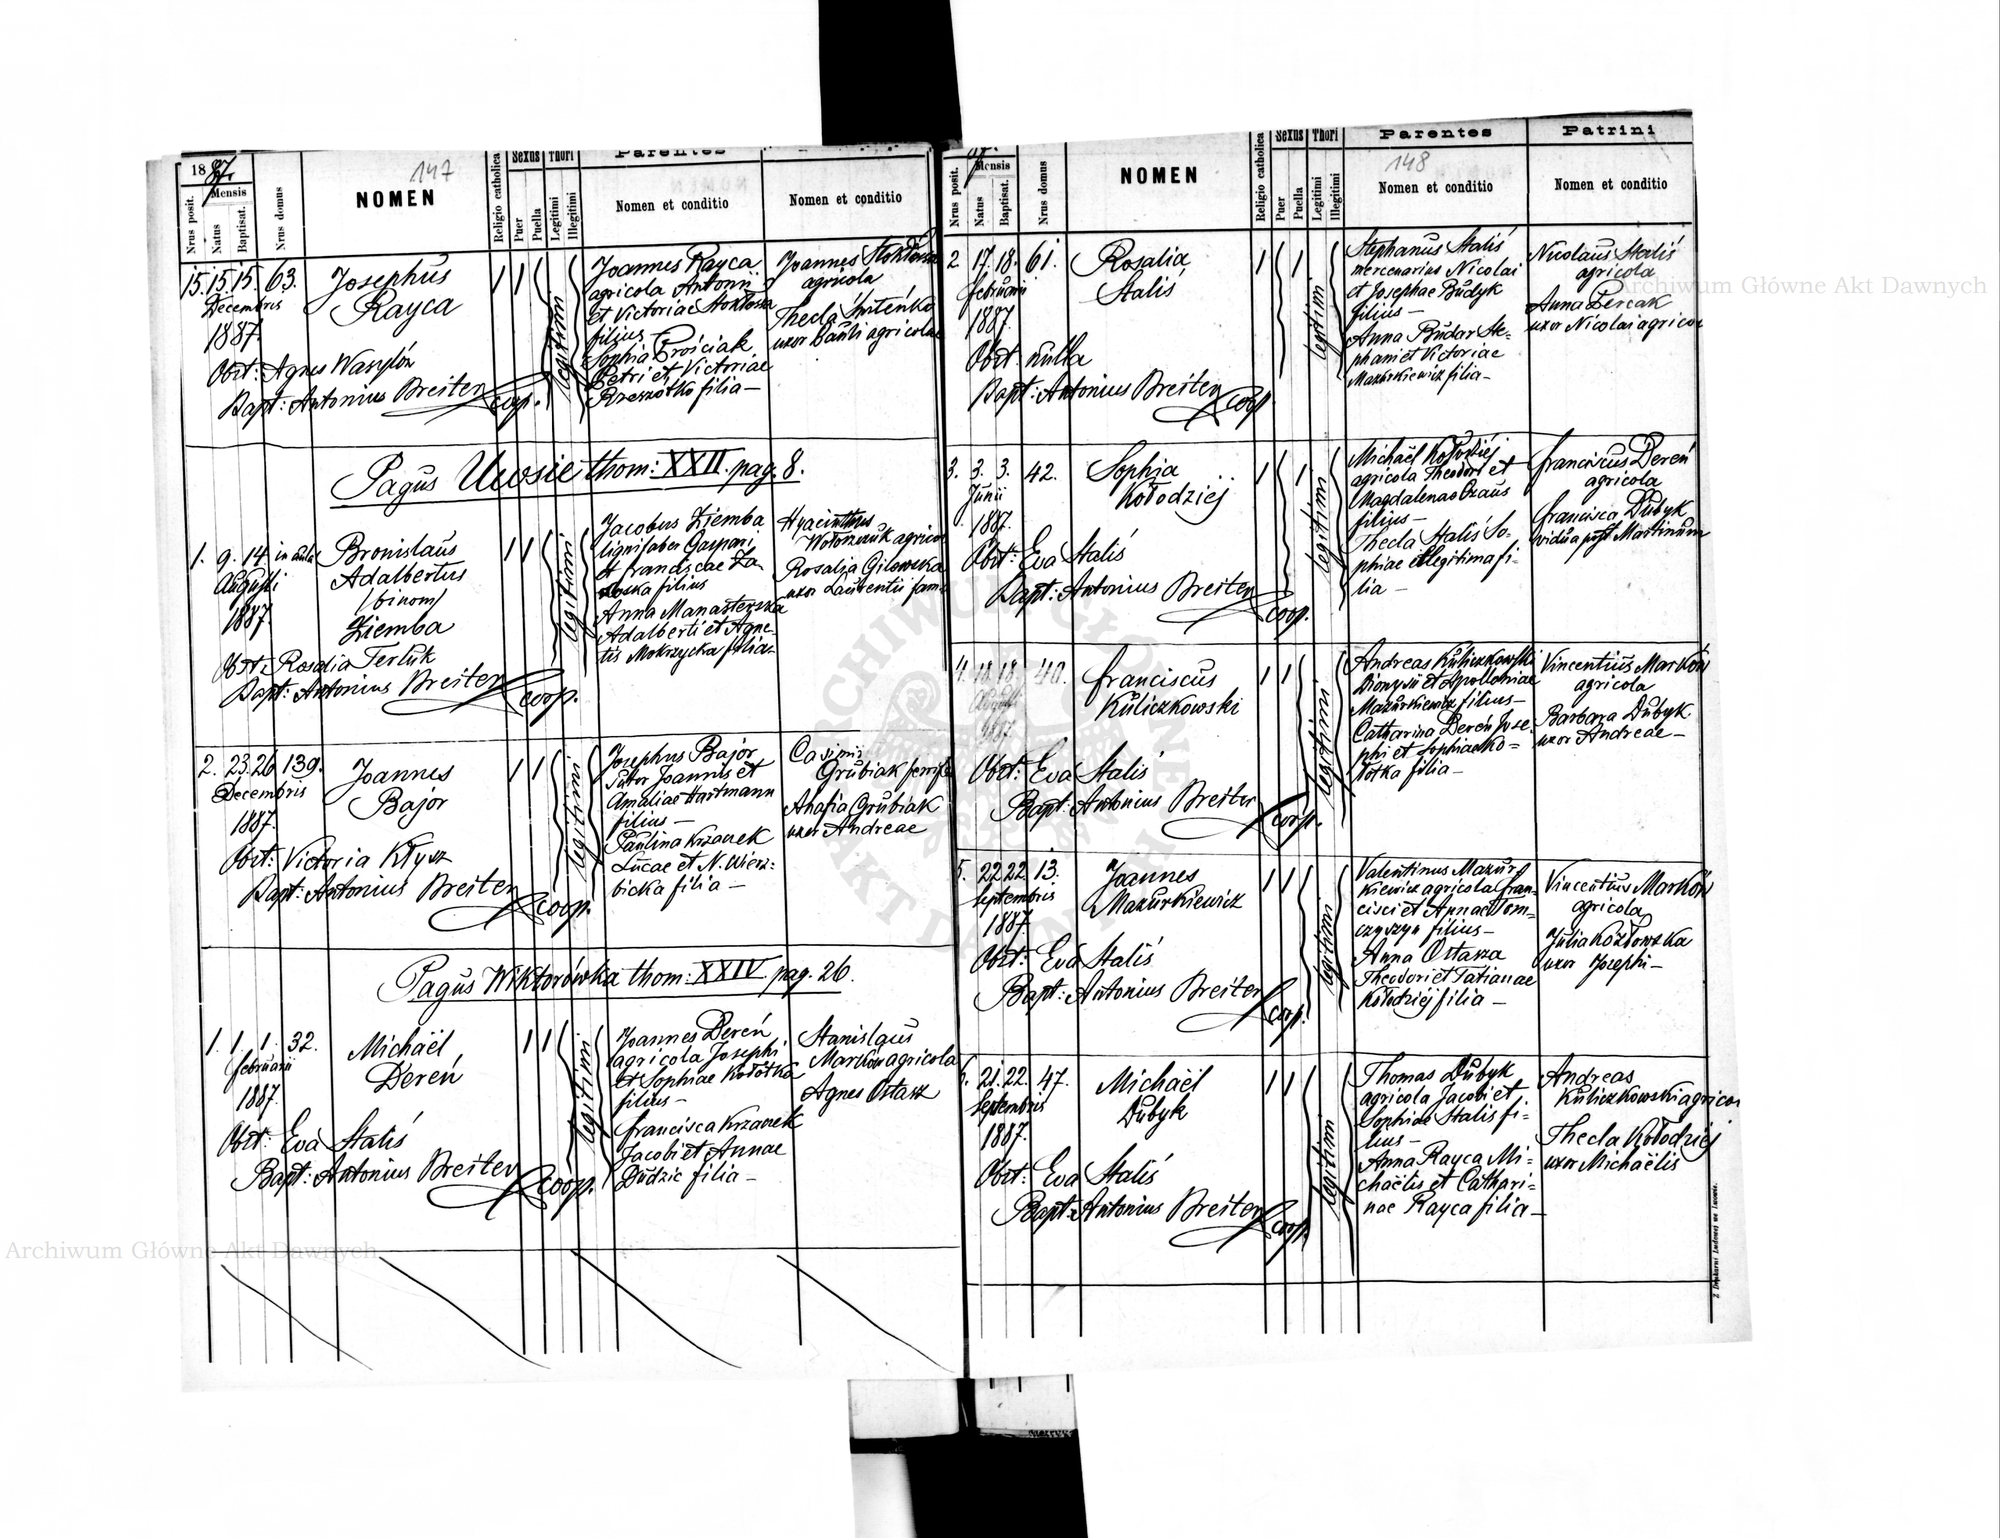 1887.
147
Nrus posit.
Mensis
Natus
Baptisat.
Nrus domus
NOMEN
Religio catholica
Sexus
Puer
Puella
Thori
Legitimi
Illegitimi
Parentes
Nomen et conditio
Nomen et conditio
15. 15. 15. 63.
Decembris
1887.
Josephus
Rayca
1 1
legitimi
Joannes Rayca
agricola Antonii
et Victoriae Stoktosa
filius
Sophia Prościak
Petri et Victoriae
Rzeszotko filia —
Joannes
agricola
Thecla
uxor Pauli agricolae
Obst: Agnes Wasylów
Bapt: Antonius Breiter coop.
Pagus Uwsie thom: XXII. pag. 8.
1. 9. 14. in aula
Augusti
1887.
Bronislaus
Adalbertus
/binom/
Ziemba
1 1
legitimi
Jacobus Ziemba
lignifaber Gaspari
et Franciscae Za-
filius
Anna Manasterska
Adalberti et Agne-
tis Mokrzycka filia-
Hyacinthus
Wołończuk agricola
Rosalia Gilewska
uxor Laurentii fam.
Obst: Rosalia Terluk
Bapt: Antonius Breiter coop.
2. 23. 26. 139.
Decembris
1887.
Joannes
Bajor
1 1
legitimi
Josephus Bajor
Sutor Joannis et
Amaliae Hartmann
filius —
Paulina Krzanek
Lucae et N. Wierz-
bicka filia —
Casimir
Grubiak
Ahafia Grubiak
uxor Andreae
Obst: Victoria Kłysz
Bapt: Antonius Breiter coop.
Pagus Wiktorówka thom: XXIV. pag. 26.
1. 1. 1. 32.
februarii
1887.
Michaël
Dereń
1 1
legitimi
Joannes Dereń
agricola Josephi
et Sophiae Kołotka
filius —
Francisca Krzanek
Jacobi et Annae
Dudzic filia —
Stanislaus
Marków agricola
Agnes Ostasz
Obst: Eva Staliś
Bapt: Antonius Breiter coop.
148
Nrus posit.
Mensis
Natus
Baptisat.
Nrus domus
NOMEN
Religio catholica
Sexus
Puer
Puella
Thori
Legitimi
Illegitimi
Parentes
Nomen et conditio
Patrini
Nomen et conditio
2. 17. 18. 61.
februarii
1887.
Rosalia
Staliś
1 1
legitimi
Stephanus Staliś
mercenarius Nicolai
et Josephae Budyk
filius —
Anna Budar Ste-
phani et Victoriae
Mazurkiewicz filia —
Nicolaus Staliś
agricola
Anna Percak
uxor Nicolai agricolae
Obst. nulla
Bapt: Antonius Breiter coop.
3. 3. 3. 42.
Junii
1887.
Sophia
Kołodziej
1 1
legitimi
Michaël Kołodziej
agricola Theodori et
Magdalenae Ozaus
filius —
Thecla Staliś So-
phiae illegitima fi-
lia —
Franciscus Dereń
agricola
Francisca Dubyk
vidua post Martinum
Obst: Eva Staliś
Bapt: Antonius Breiter coop.
4. 18. 18. 40.
1887.
Franciscus
Kuliczkowski
1 1
legitimi
Andreas Kuliczkowski
Dionysii et Apolloniae
Mazurkiewicz filius —
Catharina Dereń Jose-
phi et Sophiae Ko-
łotka filia —
Vincentius Marków
agricola
Barbara Dubyk
uxor Andreae —
Obst: Eva Staliś
Bapt: Antonius Breiter coop.
5. 22. 22. 13.
Septembris
1887.
Joannes
Mazurkiewicz
1 1
legitimi
Valentinus Mazur-
kiewicz agricola Fran-
cisci et Annae Tom-
czyszyn filius —
Anna Ostasza
Theodori et Tatianae
Kołodziej filia —
Vincentius Marków
agricola
Julia Kozłowska
uxor Josephi —
Obst: Eva Staliś
Bapt: Antonius Breiter coop.
6. 21. 22. 47.
Septembris
1887.
Michaël
Dubyk
1 1
legitimi
Thomas Dubyk
agricola Jacobi et
Sophiae Stalis fi-
lius —
Anna Rayca Mi-
chaëlis et Cathari-
nae Rayca filia —
Andreas
Kuliczkowski agricola
Thecla Kołodziej
uxor Michaëlis
Obst: Eva Staliś
Bapt: Antonius Breiter coop.
Z Drukarni Ludowej we Lwowie.
Archiwum Główne Akt Dawnych
Archiwum Główne Akt Dawnych
ARCHIWUM GŁÓWNE AKT DAWNYCH